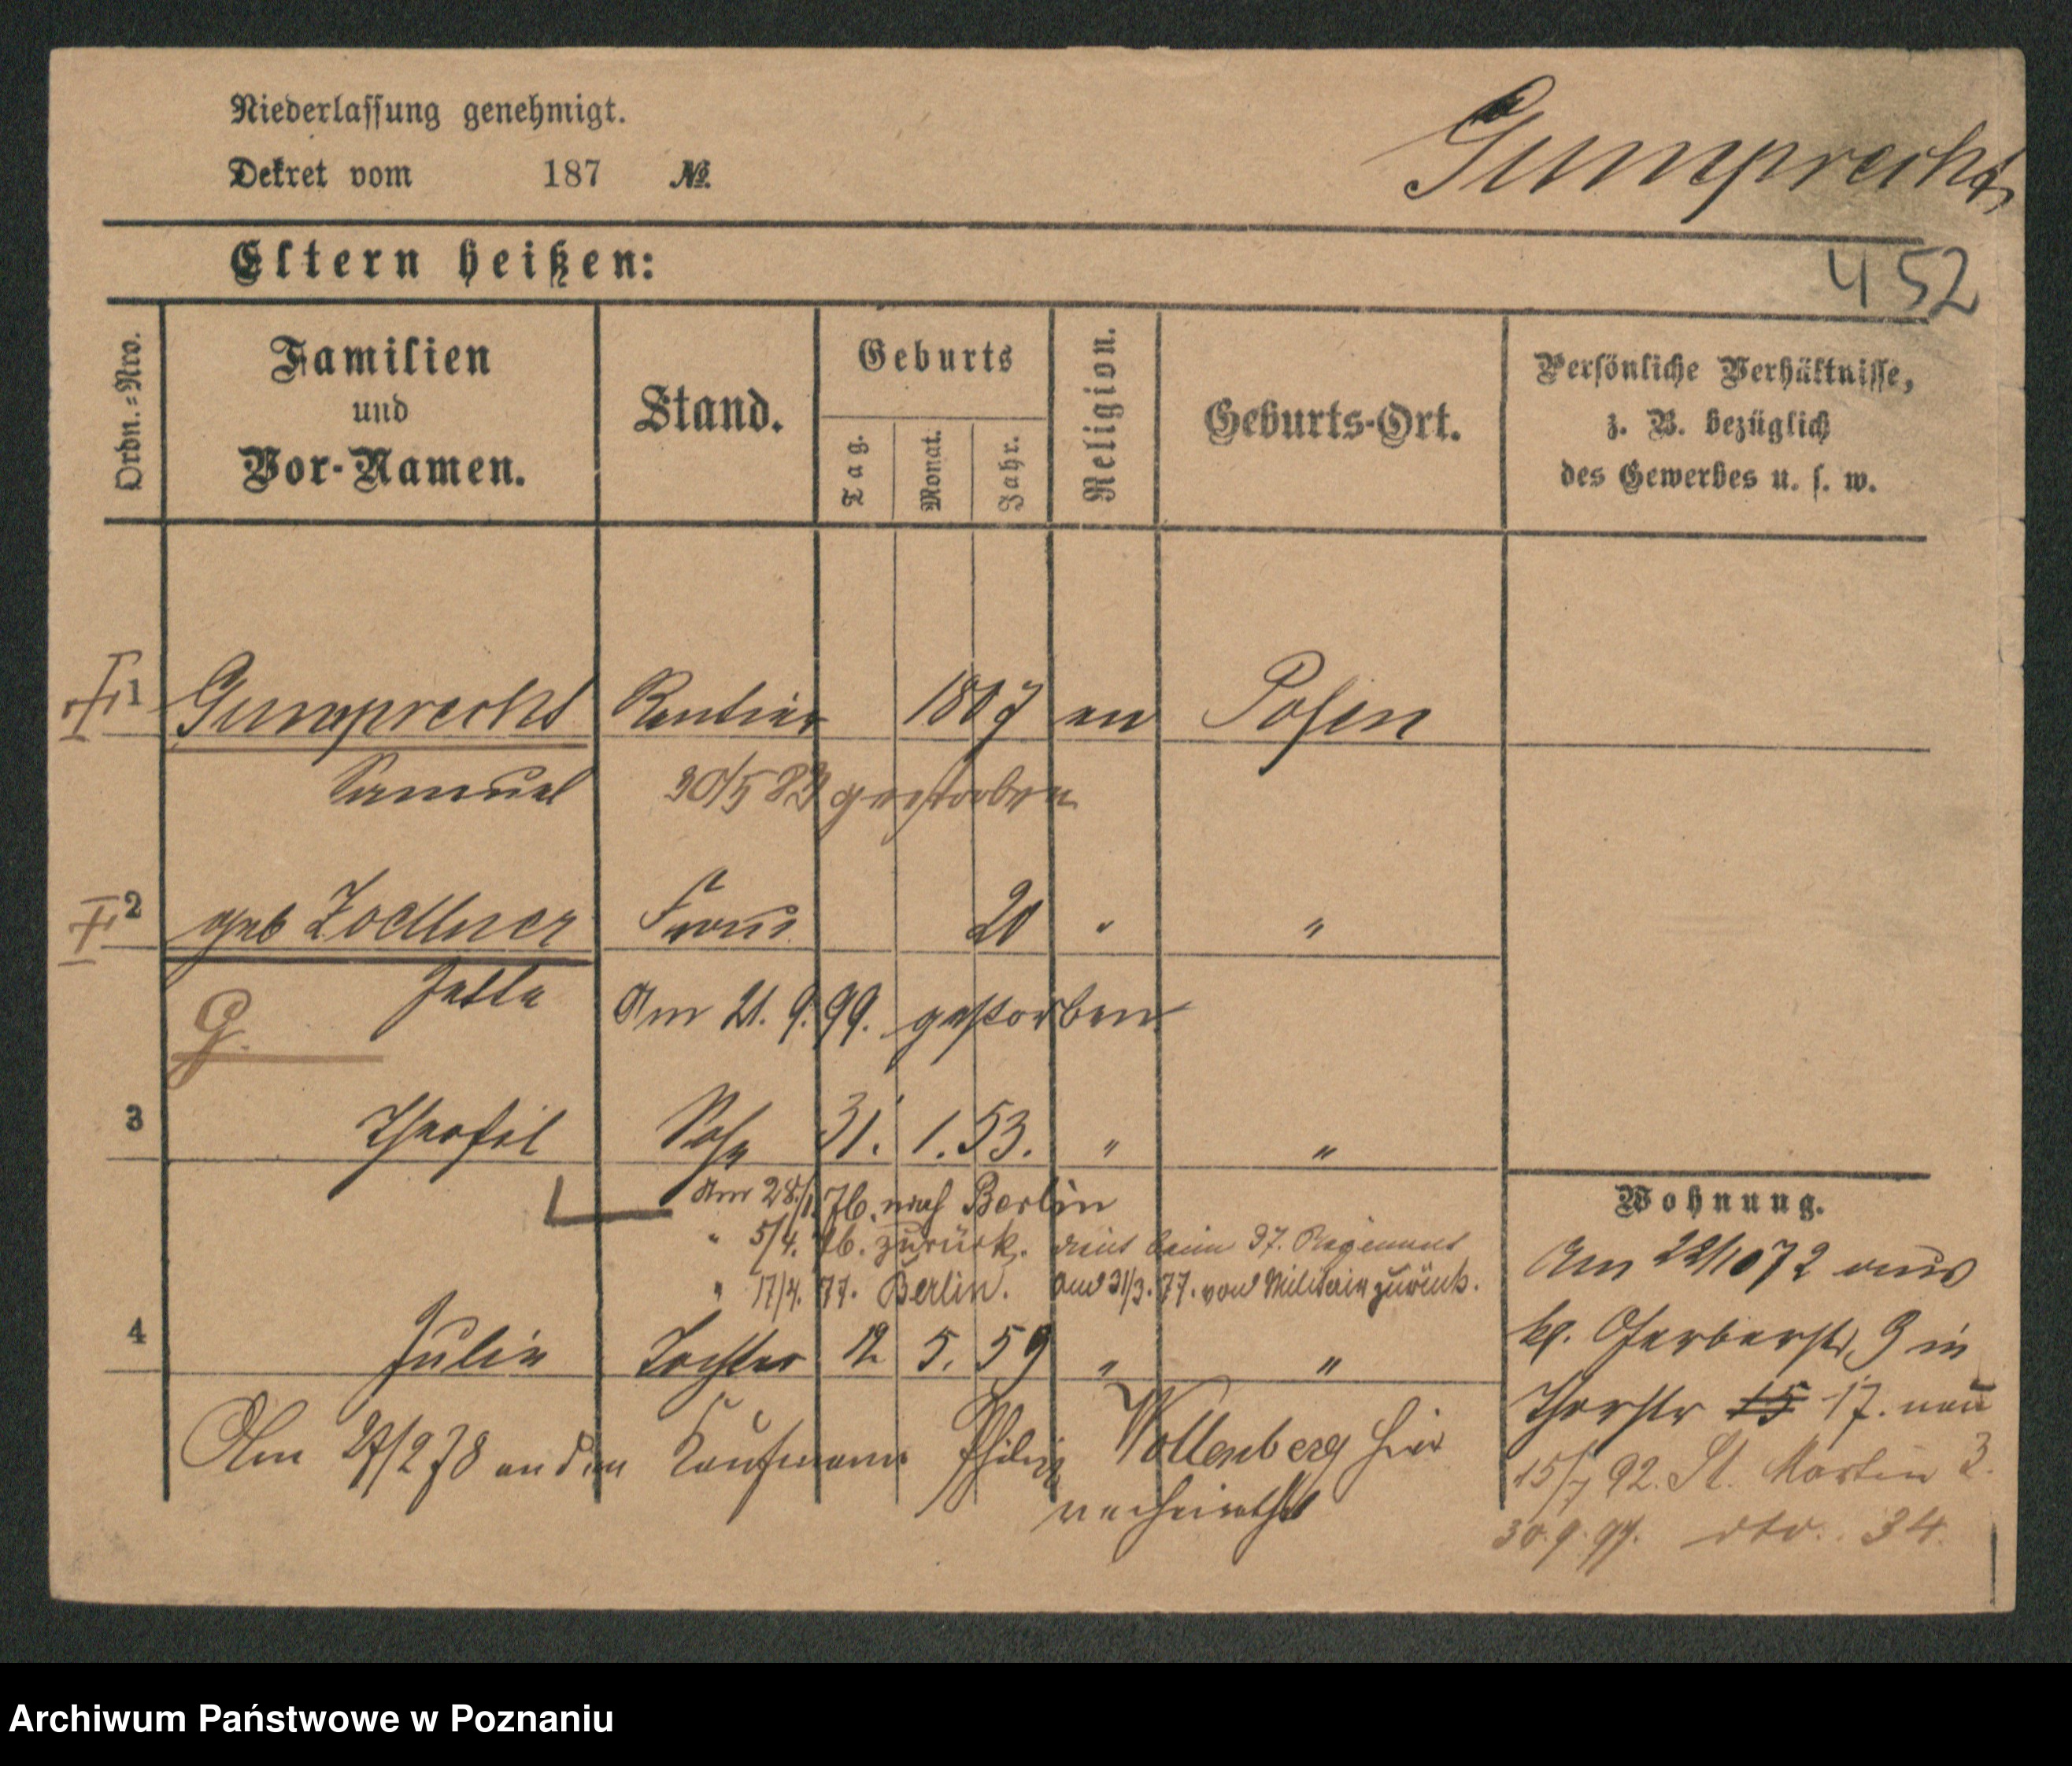 Niederlassung genehmigt.
Gumprecht
Dekret vom 187 №
Eltern heißen:
452
Ordn.=Nro.
Familien und Vor-Namen.
Stand.
Geburts
Tag. Monat. Jahr.
Religion.
Geburts-Ort.
Persönliche Verhältnisse, z. B. bezüglich des Gewerbes u. s. w.
1 Gumprecht Rentier 1807 Posen
Samuel 30/5 83 gestorben
2 geb Zoellner Frau 20 " "
Jette Am 21. 9. 99. gestorben
G.
3 Theofil Sohn 31. 1. 53. " "
Am 28/1. 76. nach Berlin
" 5/4. 76. zurück. beim 37. Regiment
" 17/4. 77. Berlin. am 31/3. 77. vom Militair zurück.
4 Julie Tochter 12 5. 59 " "
Am 27/2 78 an den Kaufmann Philipp Wollenberg hier
verheirathet
Wohnung.
Am 22/10 72 aus
kl. Gerberstr. 9 in
Thorstr 15 17. neu
15/7 92. St. Martin 3.
30.9.97. dto. 34.
Archiwum Państwowe w Poznaniu